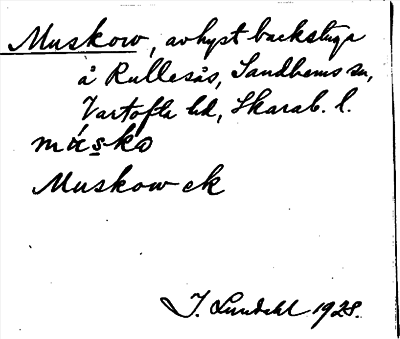 Muskow, avhyst backstuga
å Rullesås, Sandhems sn,
Vartofta hd, Skarab. l.
Muskow ek
J. Lundahl 1928.